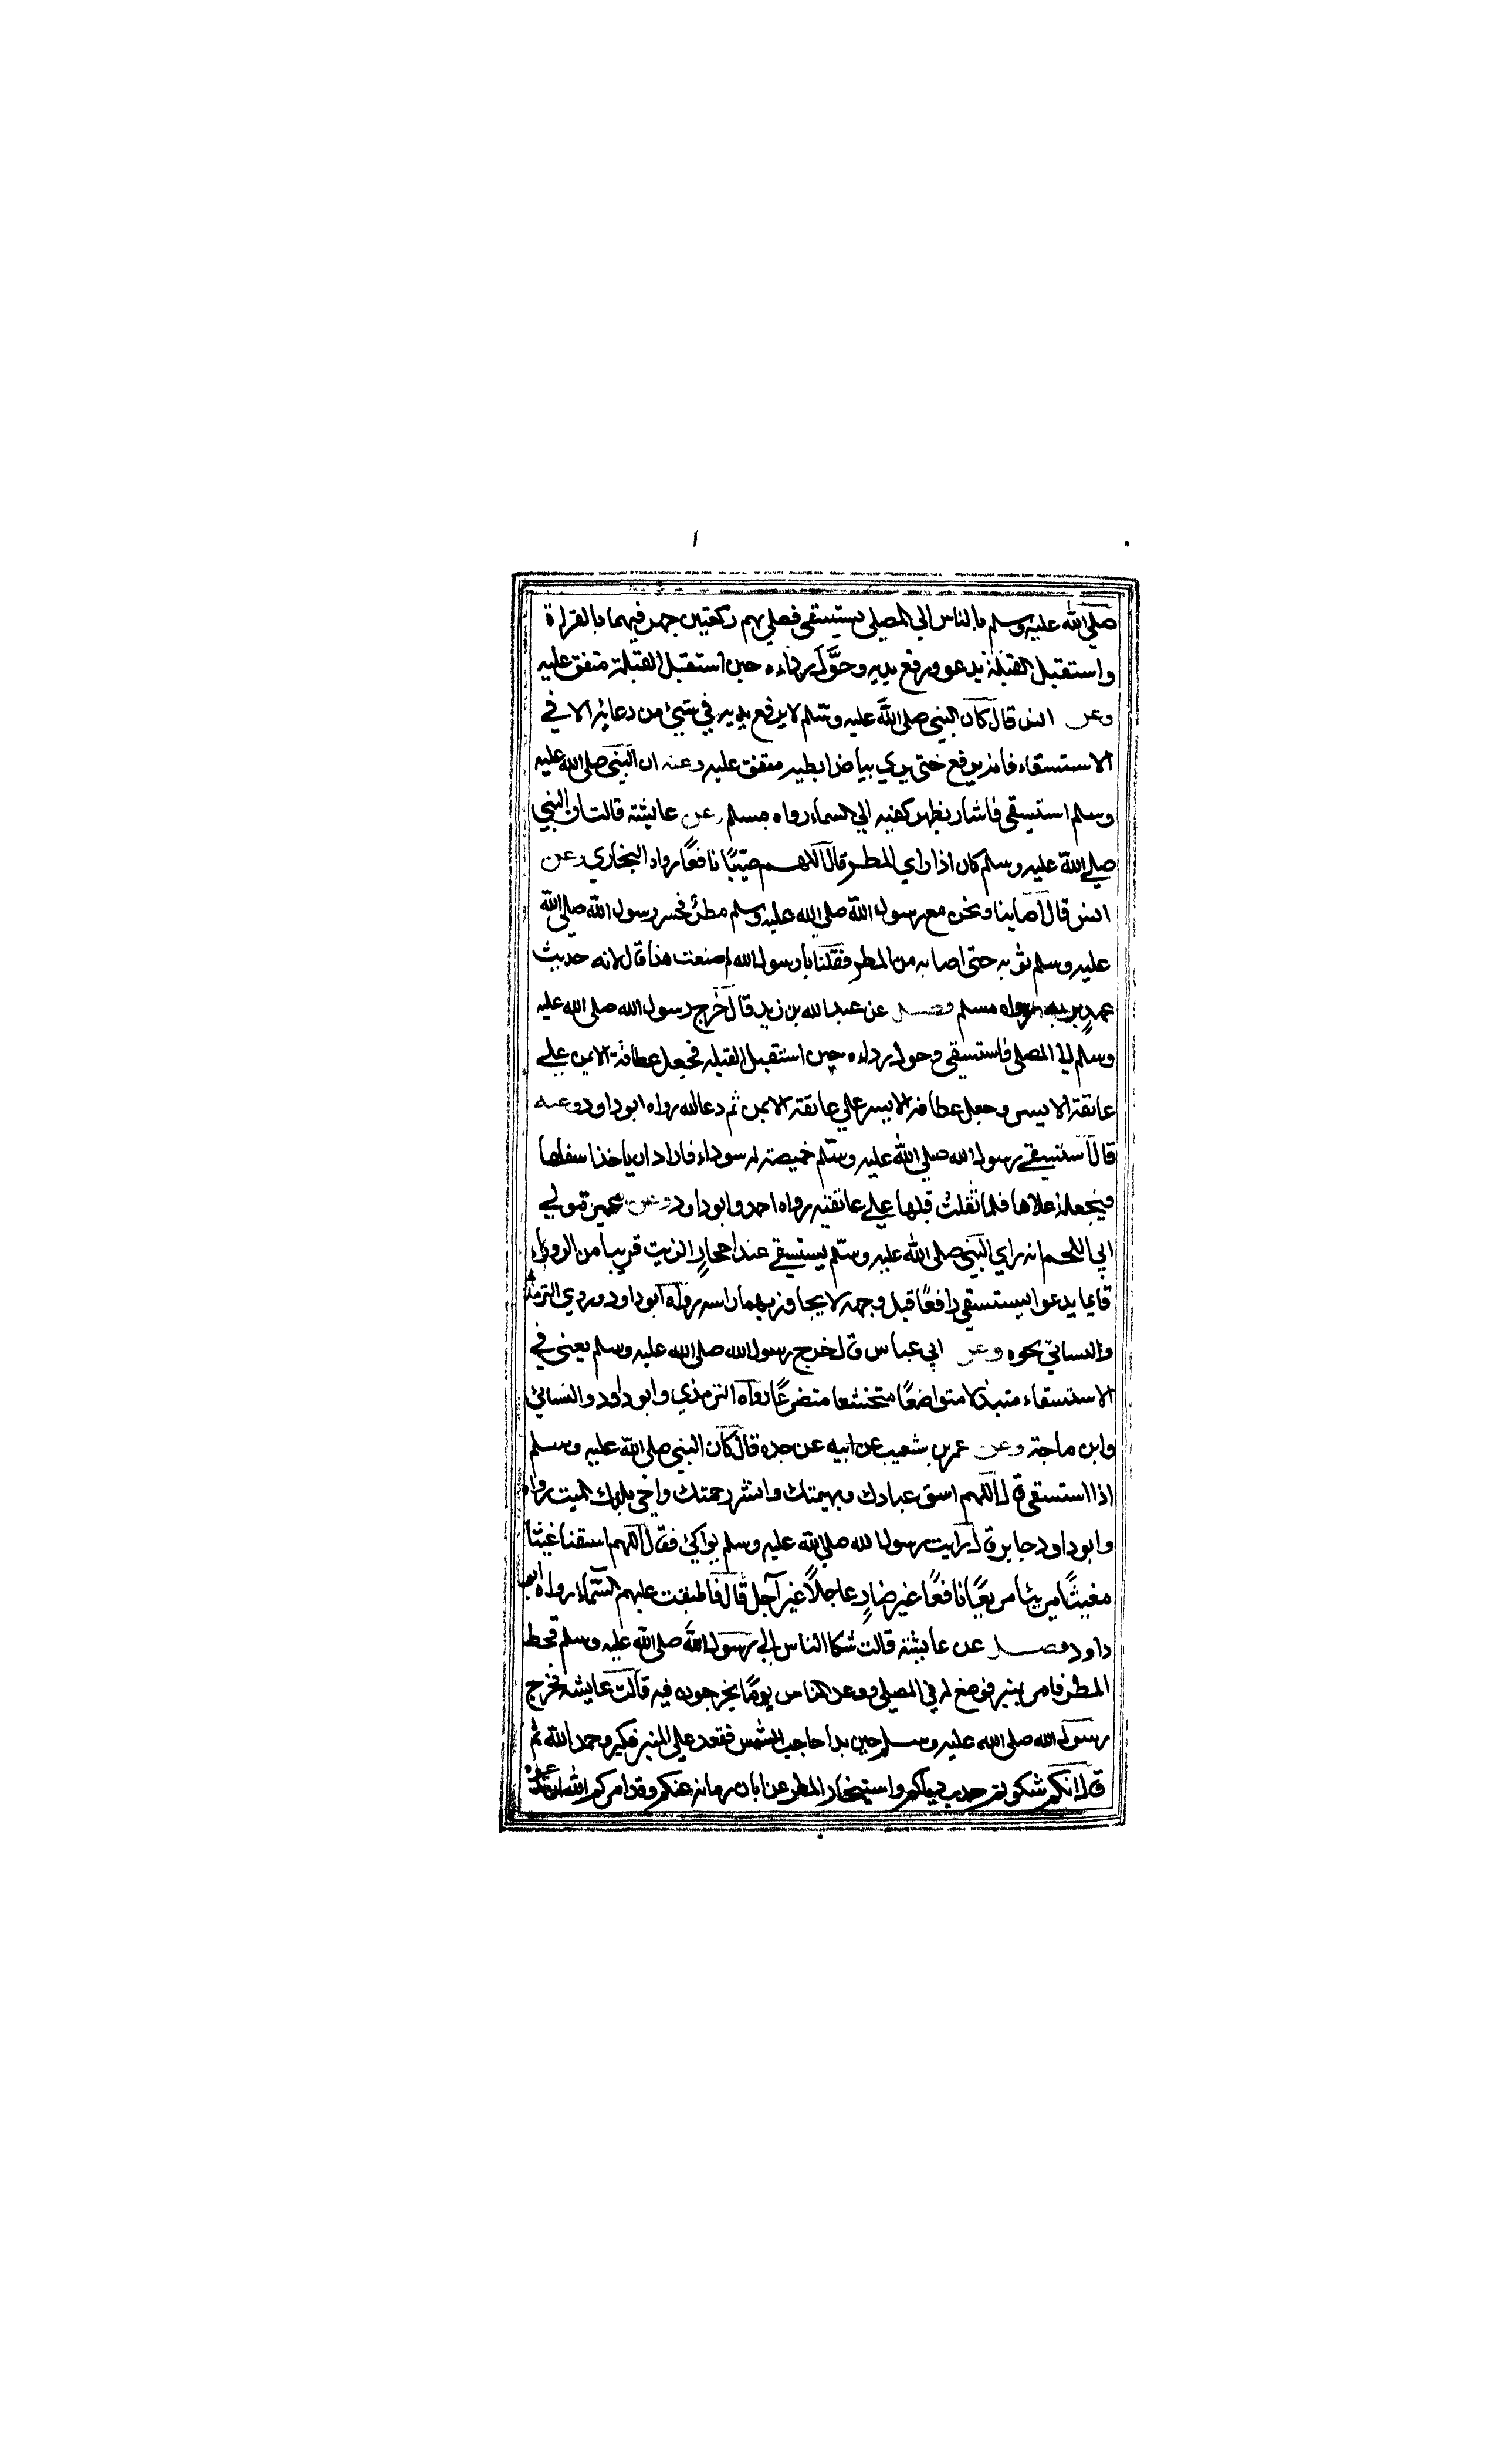 صلي الله عليه وسلم بالناس الي المصلي يستسقي فصلي بهم ركعتين جهر فيهما بالقراة
واستقبل القبلة يدعو ورفع يديه وحوَّل رداءه حين استقبل القبلة متفق عليه
وعن انس قال كان النبي صلي الله عليه وسلم لا يرفع يديه في شيئ من دعائه الا في
الاستسقاء فانه يرفع حتي يري بياض ابطيه متفق عليه وعنه ان النبي صلي الله عليه
وسلم استسقي فاشار بظهر كفيه الي السماء رواه مسلم وعن عايشة قالت ان النبي
صلي الله عليه وسلم كان اذا راي المطر قال اللهم صيّبًا نافعًا رواه البخاري وعن
انس قال اصابنا ونحن مع رسول الله صلي الله عليه وسلم مطر فحسر رسول الله صلي الله
عليه وسلم ثوبه حتي اصابه من المطر فقلنا يا رسول الله لم صنعت هذا قال لانه حديث
عهدٍ بربه رواه مسلم فصل عن عبد الله بن زيد قال خرج رسول الله صلي الله عليه
وسلم الي المصلي فاستسقي وحول رداءه حين استقبل القبلة فجعل عطافه الايمن علي
عاتقه الايسر وجعل عطافه الايسر علي عاتقه الايمن ثم دعا الله رواه ابو داود وعنه
قال استسقي رسول الله صلي الله عليه وسلم خميصة له سوداء فاراد ان ياخذ اسفلها
فيجعله اعلاها فلما ثقلت قلبها علي عاتقيه رواه احمد وابو داود وعن عمير مولي
ابي اللحم انه راي النبي صلي الله عليه وسلم يستسقي عند احجار الزيت قريبا من الزوراء
قايما يدعوا يستسقي رافعًا قبل وجهه لا يجاوز بهما راسه رواه ابو داود وروي الترمذي
والنسائي نحوه وعن ابي عباس قال خرج رسول الله صلي الله عليه وسلم يعني في
الاستسقاء متبذلا متواضعًا متخشعا متضرعًا رواه الترمذي وابو داود والنسائي
وابن ماجة وعن عمر بن شعيب عن ابيه عن جده قال كان النبي صلي الله عليه وسلم
اذا استسقي قال اللهم اسق عبادك وبهيمتك وانشر رحمتك واحي بلدك الميت رواه
وابو داود جابر قال رايت رسول الله صلي الله عليه وسلم يواكئ فقال اللهم اسقنا غيثا
مغيثًا مريئا مريعًا نافعًا غير ضارٍ عاجلاً غير آجل قال فاطبقت عليهم السّماء رواه ابو
داود فصل عن عايشة قالت شكا الناس الي رسول الله صلي الله عليه وسلم قحط
المطر فامر بمنبر فوضع له في المصلي ووعد الناس يومًا يخرجون فيه قالت عايشة فخرج
رسول الله صلي الله عليه وسلم حين بدا حاجب الشمس فقعد علي المنبر فكبر وحمد الله ثم
قال انكم شكوتم جدب دياركم واستيخار المطر عن ابان زمانه عنكم وقد امركم الله ان تدعوه